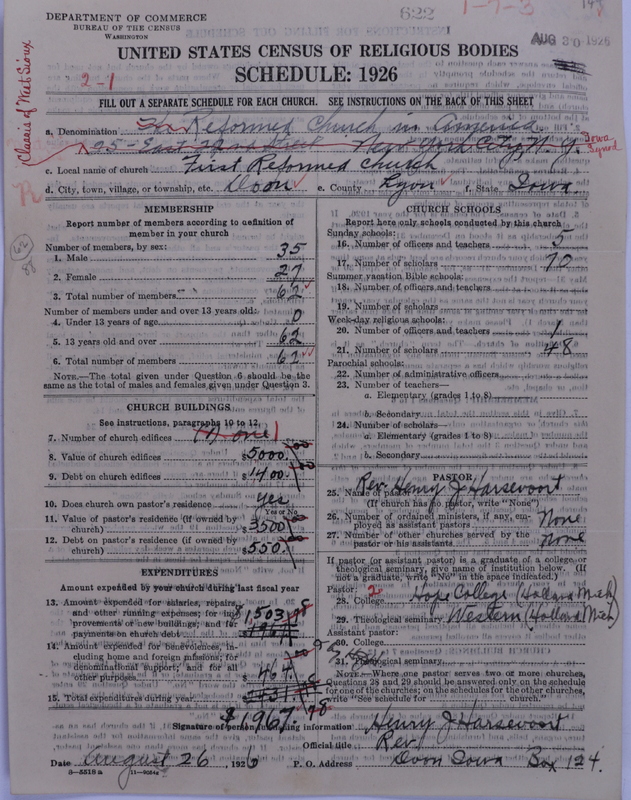 DEPARTMENT OF COMMERCE
BUREAU OF THE CENSUS
WASHINGTON
622
1-7-3
AUG 30 1926
UNITED STATES CENSUS OF RELIGIOUS BODIES
SCHEDULE: 1926
2-1
Classis of West Sioux
FILL OUT A SEPARATE SCHEDULE FOR EACH CHURCH. SEE INSTRUCTIONS ON THE BACK OF THIS SHEET
a. Denomination The Reformed Church in America
25-East 22nd Street New York City N.Y.
Iowa Synod
c. Local name of church First Reformed Church
d. City, town, village, or township, etc. Doon e. County Lyon f. State Iowa
MEMBERSHIP
Report number of members according to definition of member in your church
Number of members, by sex:
1. Male 35
2. Female 27
3. Total number of members 62
Number of members under and over 13 years old:
4. Under 13 years of age 0
5. 13 years old and over 62
6. Total number of members 62
NOTE.—The total given under Question 6 should be the same as the total of males and females given under Question 3.
CHURCH BUILDINGS
See instructions, paragraphs 10 to 12
7. Number of church edifices (1) one 1
8. Value of church edifices $5000.00
9. Debt on church edifices $1400.00
10. Does church own pastor's residence yes
Yes or No
11. Value of pastor's residence (if owned by church) $3500.00
12. Debt on pastor's residence (if owned by church) $550.00
EXPENDITURES
Amount expended by your church during last fiscal year
13. Amount expended for salaries, repairs, and other running expenses; for improvements or new buildings; and for payments on church debt 1,503.78
14. Amount expended for benevolences, including home and foreign missions; for denominational support; and for all other purposes 464.00
15. Total expenditures during year
$1967.78
CHURCH SCHOOLS
Report here only schools conducted by this church
Sunday schools:
16. Number of officers and teachers 5
17. Number of scholars 70
Summer vacation Bible schools:
18. Number of officers and teachers
19. Number of scholars
Week-day religious schools:
20. Number of officers and teachers 1
21. Number of scholars 48
Parochial schools:
22. Number of administrative officers
23. Number of teachers—
a. Elementary (grades 1 to 8)
b. Secondary
24. Number of scholars—
a. Elementary (grades 1 to 8)
b. Secondary
PASTOR
25. Name of pastor Rev. Henry J Harsevoort
(If church has no pastor, write "None")
26. Number of ordained ministers, if any, employed as assistant pastors None
27. Number of other churches served by the pastor or his assistants None
If pastor (or assistant pastor) is a graduate of a college or theological seminary, give name of institution below. (If not a graduate, write "No" in the space indicated.)
Pastor: 2
28. College Hope College (Holland Mich)
29. Theological seminary Western (Holland Mich)
Assistant pastor:
30. College
31. Theological seminary
NOTE.—Where one pastor serves two or more churches, Questions 28 and 29 should be answered only on the schedule for one of the churches; on the schedules for the other churches, write "See schedule for church."
Signature of person furnishing information Henry J Harsevoort
Official title Rev.
Date August 26 1926 P. O. Address Doon Iowa Box 124.
8—5518a 11—9054a